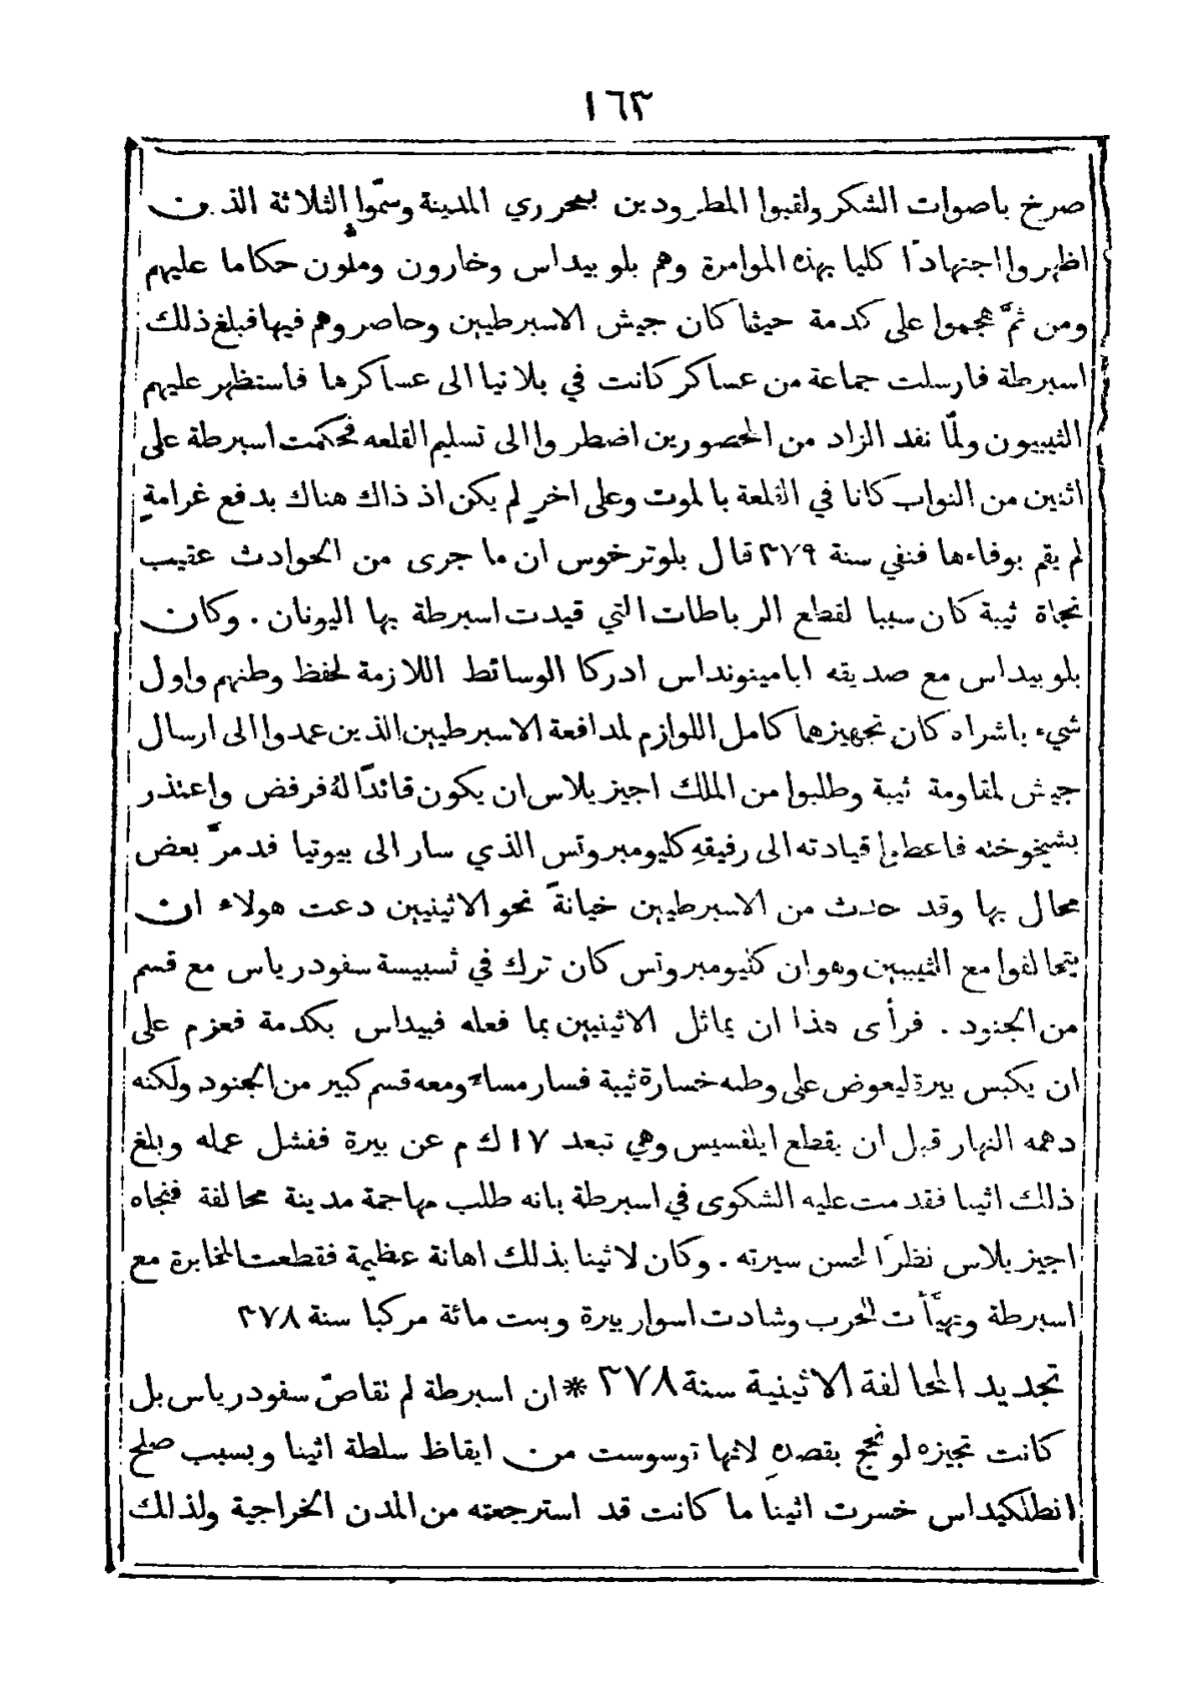 ١٦٣
صرخ باصوات الشكر ولقبوا المطرودين بمحرري المدينة وسمّوا الثلاثة الذين
اظهروا اجتهادًا كليا بهذه الموامرة وهم بلوبيداس وخارون وملون حكاما عليهم
ومن ثمَّ هجموا على كدمة حيثما كان جيش الاسبرطيين وحاصروهم فيها فبلغ ذلك
اسبرطة فارسلت جماعة من عساكر كانت في بلاتيا الى عساكرها فاستظهر عليهم
الثيبيون ولمّا نفد الزاد من المحصورين اضطروا الى تسليم القلعه فحكمت اسبرطة على
اثنين من النواب كانا في القلعة بالموت وعلى اخرٍ لم يكن اذ ذاك هناك بدفع غرامةٍ
لم يقم بوفاءها فنفي سنة ٣٧٩ قال بلوترخوس ان ما جرى من الحوادث عقيب
نجاة ثيبة كان سببا لقطع الرباطات التي قيدت اسبرطة بها اليونان . وكان
بلوبيداس مع صديقه ابامينونداس ادركا الوسائط اللازمة لحفظ وطنهم واول
شيء باشراه كان تجهيزهما كامل اللوازم لمدافعة الاسبرطيين الذين عمدوا الى ارسال
جيش لمقاومة ثيبة وطلبوا من الملك اجيزيلاس ان يكون قائدًا لهُ فرفض واعتذر
بشيخوخته فاعطوا قيادته الى رفيقهِ كليومبروتس الذي سار الى بيوتيا فدمرَّ بعض
محال بها وقد حدث من الاسبرطيين خيانةً نحو الاثينيين دعت هولاء ان
يتحالفوا مع الثيبيين وهو ان كليومبروتس كان ترك في ثسبيسة سفودرياس مع قسم
من الجنود . فرأى هذا ان يماثل الاثينيين بما فعله فبيداس بكدمة فعزم على
ان يكبس بيرة ليعوض على وطنه خسارة ثيبة فسار مساءً ومعه قسم كبير من الجنود ولكنه
دهمه النهار قبل ان يقطع ايلفسيس وهي تبعد ١٧ ك م عن بيرة ففشل عمله وبلغ
ذلك اثينا فقدمت عليه الشكوى في اسبرطة بانه طلب مهاجمة مدينة محالفة فنجاه
اجيزيلاس نظرًا لحسن سيرته . وكان لاثينا بذلك اهانة عظيمة فقطعت المخابرة مع
اسبرطة وتهيَّأَت للحرب وشادت اسوار بيرة وبنت مائة مركبا سنة ٣٧٨
تجديد المحالفة الاثينية سنة ٣٧٨ * ان اسبرطة لم تقاصّ سفودرياس بل
كانت تجيزه لو نجح بقصدهِ لانها توسوست من ايقاظ سلطة اثينا وبسبب صلح
انطلكيداس خسرت اثينا ما كانت قد استرجعته من المدن الخراجية ولذلك